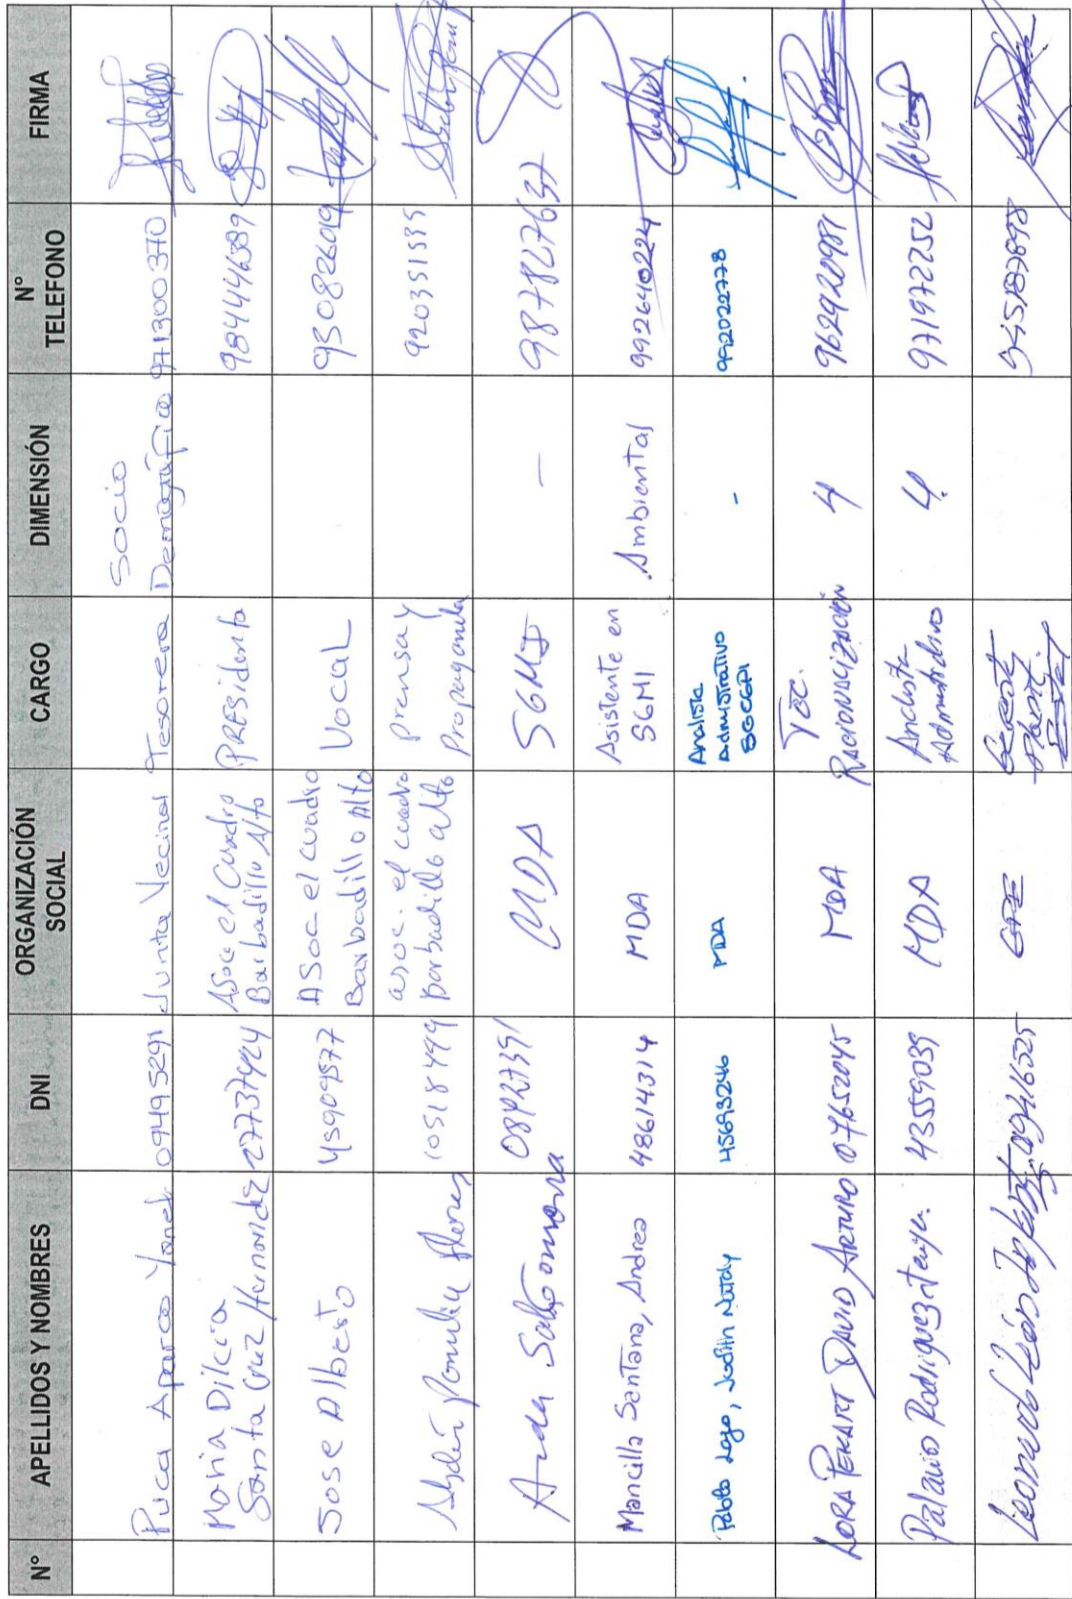 N° APELLIDOS Y NOMBRES DNI ORGANIZACIÓN SOCIAL CARGO DIMENSIÓN N° TELEFONO FIRMA
Puca Aparco Yanet 09495291 Junta Vecinal Tesorera Socio Demográfico 971300370
Maria Dilcia Santa Cruz Hernandez 27737424 Asoc el Cuadro Barbadillo Alto PRESidenta 984446389
Jose Alberto 45909577 Asoc el cuadro Barbadillo Alto Vocal 930826019
Flores 10518499 asoc. el cuadro barbadillo alto prensa y Propaganda 920351535
08427391 MDA 987827637
Mancilla Santana, Andrea 48614314 MDA Asistente en SGMI Ambiental 992640224
Pablo Lago, Judith Nataly 45693246 MDA Analista Administrativo SGCGPI - 992022778
LORA DAVID ARTURO 07652045 MDA TEC. RACIONALIZACIÓN 4 962920981
Palacio Rodriguez 43559039 MDA Analista Administrativo 4 971972252
Leonardo León 09416525 GPE